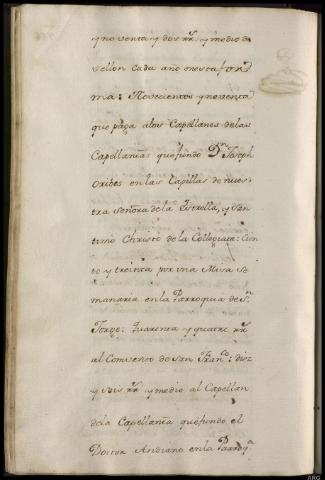 y noventa y dos rr.s y medio de
vellon cada año en esta for-
ma: Novecientos y noventa
que paga a los Capellanes de las
Capellanias que fundo D.n Joseph
Oribes en las Capillas de nues-
tra Señora de la Estrella, y San-
tisimo Christo de la Collegiata: Cien-
to y treinta por una Misa Se-
manaria en la Parroquia de S.n
Jorge: Quarenta y quatro rr.s
al Comvento de San Fran.co: diez
y seis rr.s y medio al Capellan
de la Capellania que fundo el
Doctor Andiano en la Parroq.a
ARG